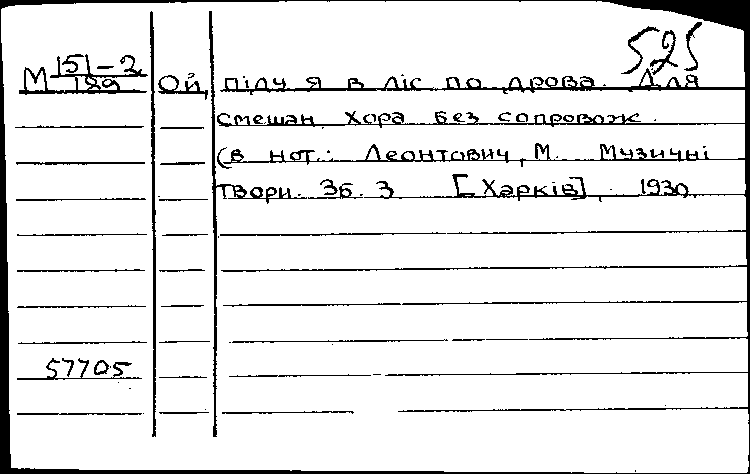 525
М 151-2/189 Ой, піду я в ліс по дрова. Для
смешан. хора без сопровож.
(в нот.: Леонтович, М. Музичні
твори. Зб. 3 [Харків], 1930.
57705